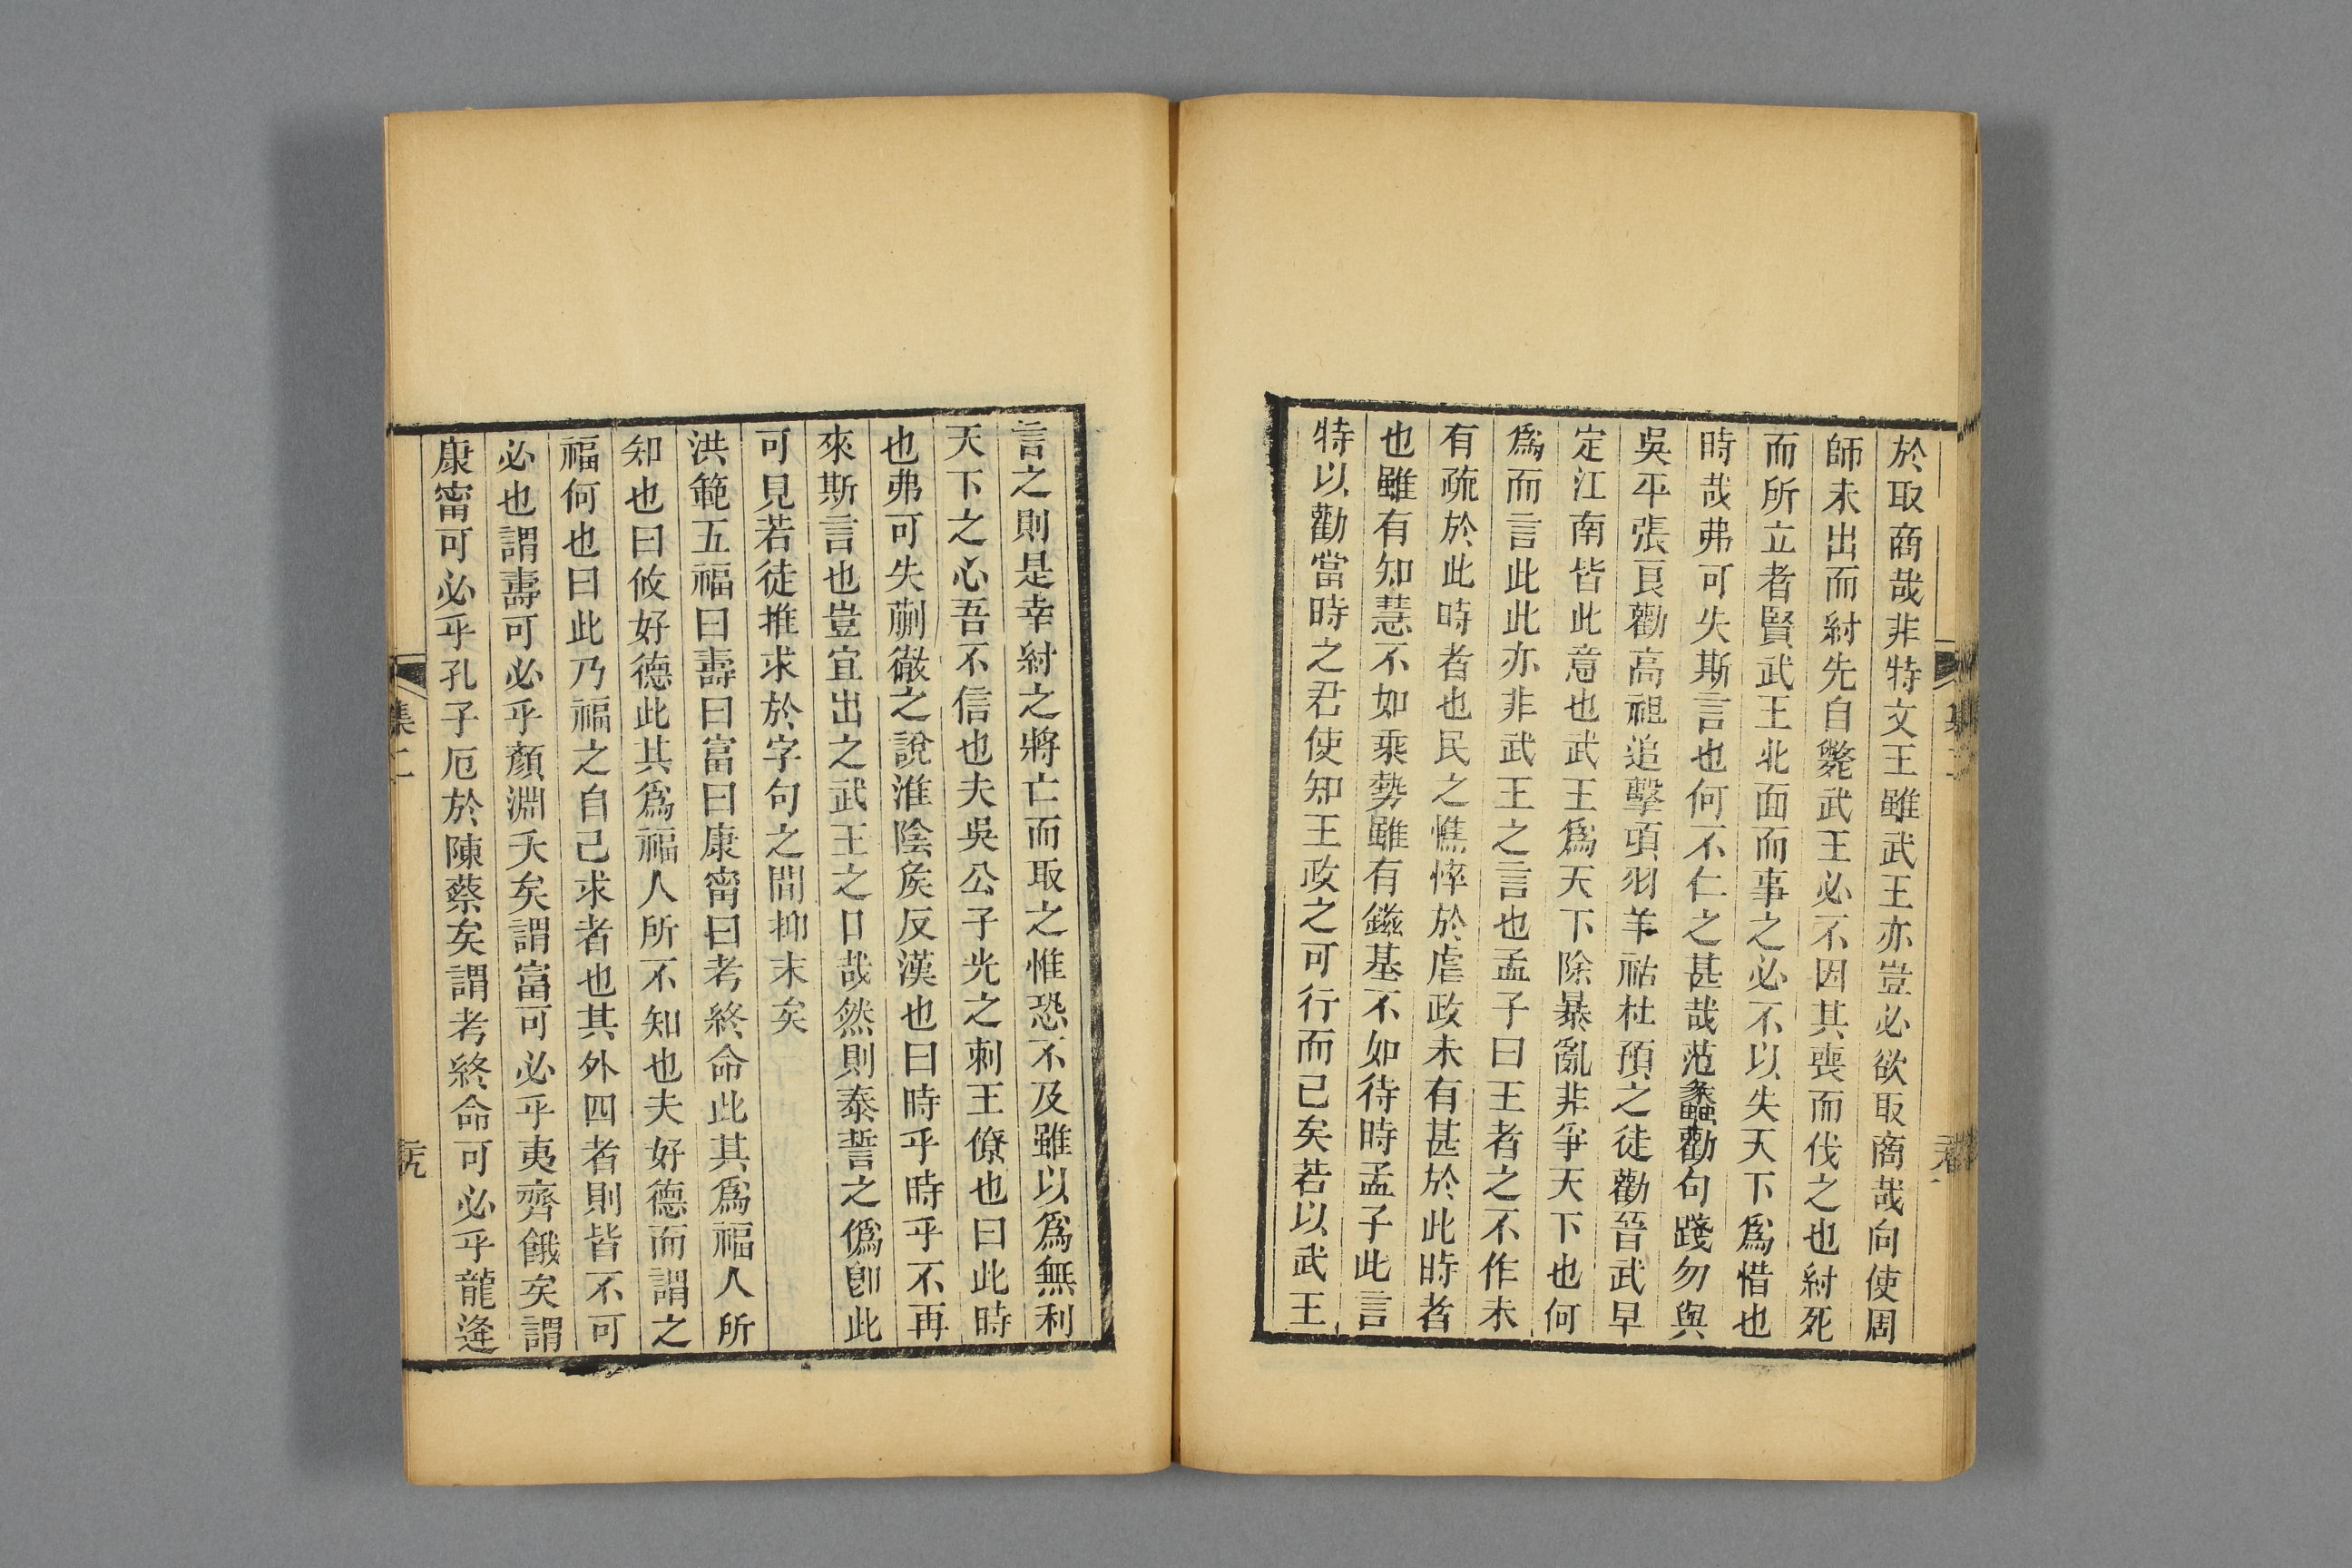 於取商哉非特文王雖武王亦豈必欲取商哉向使周
師未出而紂先自斃武王必不因其喪而伐之也紂死
而所立者賢武王北面而事之必不以失天下爲惜也
時哉弗可失斯言也何不仁之甚哉范蠡勸句踐勿與
吳平張良勸高祖追擊項羽羊祜杜預之徒勸晉武早
定江南皆此意也武王爲天下除暴亂非爭天下也何
爲而言此此亦非武王之言也孟子曰王者之不作未
有疏於此時者也民之憔悴於虐政未有甚於此時者
也雖有知慧不如乘勢雖有鎡基不如待時孟子此言
特以勸當時之君使知王政之可行而已矣若以武王
言之則是幸紂之將亡而取之惟恐不及雖以爲無利
天下之心吾不信也夫吳公子光之刺王僚也曰此時
也弗可失蒯徹之說淮陰矦反漢也曰時乎時乎不再
來斯言也豈宜出之武王之口哉然則泰誓之僞卽此
可見若徒推求於字句之閒抑末矣
洪範五福曰壽曰富曰康甯曰考終命此其爲福人所
知也曰攸好德此其爲福人所不知也夫好德而謂之
福何也曰此乃福之自己求者也其外四者則皆不可
必也謂壽可必乎顏淵夭矣謂富可必乎夷齊餓矣謂
康甯可必乎孔子厄於陳蔡矣謂考終命可必乎龍逄
集二